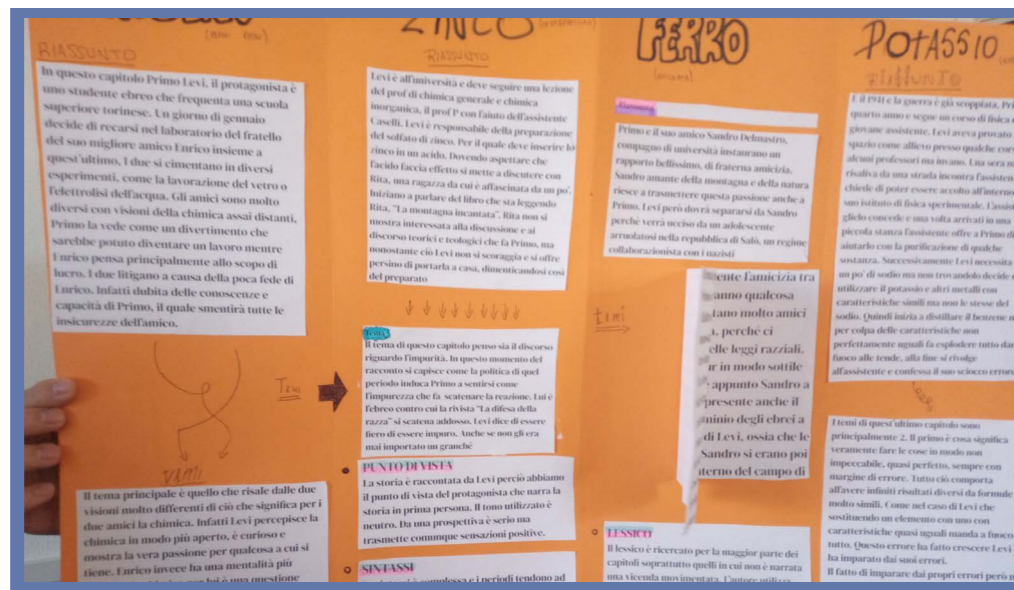 RIASSUNTO
In questo capitolo Primo Levi, il protagonista è
uno studente ebreo che frequenta una scuola
superiore torinese. Un giorno di gennaio
decide di recarsi nel laboratorio del fratello
del suo migliore amico Enrico insieme a
quest'ultimo, I due si cimentano in diversi
esperimenti, come la lavorazione del vetro o
l'elettrolisi dell'acqua. Gli amici sono molto
diversi con visioni della chimica assai distanti,
Primo la vede come un divertimento che
sarebbe potuto diventare un lavoro mentre
Enrico pensa principalmente allo scopo di
lucro. I due litigano a causa della poca fede di
Enrico. Infatti dubita delle conoscenze e
capacità di Primo, il quale smentirà tutte le
insicurezze dell'amico.
TEMI
Il tema principale è quello che risale dalle due
visioni molto differenti di ciò che significa per i
due amici la chimica. Infatti Levi percepisce la
chimica in modo più aperto, è curioso e
mostra la vera passione per qualcosa a cui si
tiene. Enrico invece ha una mentalità più
ZINCO
RIASSUNTO
Levi è all'università e deve seguire una lezione
del prof di chimica generale e chimica
inorganica, il prof P con l'aiuto dell'assistente
Caselli. Levi è responsabile della preparazione
del solfato di zinco. Per il quale deve inserire lo
zinco in un acido. Dovendo aspettare che
l'acido faccia effetto si mette a discutere con
Rita, una ragazza da cui è affascinata da un po'.
Iniziano a parlare del libro che sta leggendo
Rita, "La montagna incantata". Rita non si
mostra interessata alla discussione e ai
discorso teorici e teologici che fa Primo, ma
nonostante ciò Levi non si scoraggia e si offre
persino di portarla a casa, dimenticandosi così
del preparato
Temi
Tema
Il tema di questo capitolo penso sia il discorso
riguardo l'impurità. In questo momento del
racconto si capisce come la politica di quel
periodo induca Primo a sentirsi come
l'impurezza che fa scatenare la reazione. Lui è
l'ebreo contro cui la rivista "La difesa della
razza" si scatena addosso. Levi dice di essere
fiero di essere impuro. Anche se non gli era
mai importato un granché
PUNTO DI VISTA
La storia è raccontata da Levi perciò abbiamo
il punto di vista del protagonista che narra la
storia in prima persona. Il tono utilizzato è
neutro. Da una prospettiva è serio ma
trasmette comunque sensazioni positive.
SINTASSI
complessa e i periodi tendono ad
FERRO
Riassunto
Primo e il suo amico Sandro Delmastro,
compagno di università instaurano un
rapporto bellissimo, di fraterna amicizia.
Sandro amante della montagna e della natura
riesce a trasmettere questa passione anche a
Primo. Levi però dovrà separarsi da Sandro
perchè verrà ucciso da un adolescente
arruolatosi nella repubblica di Salò, un regime
collaborazionista con i nazisti
temi
l'amicizia tra
anno qualcosa
tano molto amici
perché ci
elle leggi razziali.
ur in modo sottile
appunto Sandro a
presente anche il
minio degli ebrei a
di Levi, ossia che le
Sandro si erano poi
terno del campo di
LESSICO
Il lessico è ricercato per la maggior parte dei
capitoli soprattutto quelli in cui non è narrata
una vicenda movimentata. L'autore utilizza
POTASSIO
RIASSUNTO
È il 1941 e la guerra è già scoppiata, Pri
quarto anno e segue un corso di fisica
giovane assistente. Levi aveva provato
spazio come allievo presso qualche cor
alcuni professori ma invano. Una sera
risaliva da una strada incontra l'assisten
chiede di poter essere accolto all'interno
suo istituto di fisica sperimentale. L'assist
glielo concede e una volta arrivati in una
piccola stanza l'assistente offre a Primo di
aiutarlo con la purificazione di qualche
sostanza. Successivamente Levi necessita
un po' di sodio ma non trovandolo decide
utilizzare il potassio e altri metalli con
caratteristiche simili ma non le stesse del
sodio. Quindi inizia a distillare il benzene
per colpa delle caratteristiche non
perfettamente uguali fa esplodere tutto dan
fuoco alle tende, alla fine si rivolge
all'assistente e confessa il suo sciocco errore
I temi di quest'ultimo capitolo sono
principalmente 2. Il primo è cosa significa
veramente fare le cose in modo non
impeccabile, quasi perfetto, sempre con
margine di errore. Tutto ciò comporta
all'avere infiniti risultati diversi da formule
molto simili. Come nel caso di Levi che
sostituendo un elemento con uno con
caratteristiche quasi uguali manda a fuoco
tutto. Questo errore ha fatto crescere Levi
ha imparato dai suoi errori.
Il fatto di imparare dai propri errori però